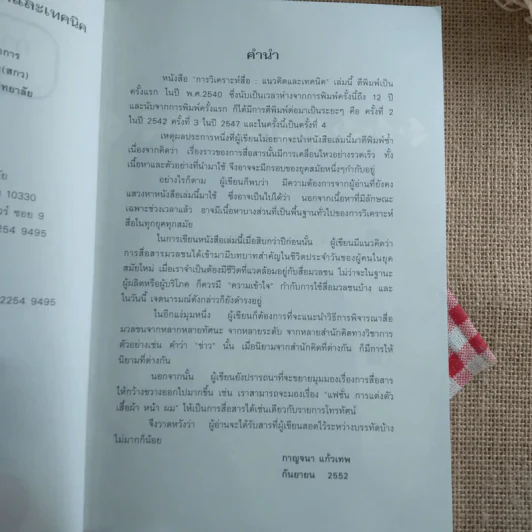 และเทคนิค
การ
(สกว)
ทยาลัย
ัย
10330
วร์ ซอย 9
2254 9495
2254 9495
คำนำ
หนังสือ "การวิเคราะห์สื่อ : แนวคิดและเทคนิค" เล่มนี้ ตีพิมพ์เป็น
ครั้งแรก ในปี พ.ศ.2540 ซึ่งนับเป็นเวลาห่างจากการพิมพ์ครั้งนี้ถึง 12 ปี
และนับจากการพิมพ์ครั้งแรก ก็ได้มีการตีพิมพ์ต่อมาเป็นระยะๆ คือ ครั้งที่ 2
ในปี 2542 ครั้งที่ 3 ในปี 2547 และในครั้งนี้เป็นครั้งที่ 4
เหตุผลประการหนึ่งที่ผู้เขียนไม่อยากจะนำหนังสือเล่มนี้มาตีพิมพ์ซ้ำ
เนื่องจากคิดว่า เรื่องราวของการสื่อสารนั้นมีการเคลื่อนไหวอย่างรวดเร็ว ทั้ง
เนื้อหาและตัวอย่างที่นำมาใช้ จึงอาจจะมีกรอบของยุคสมัยหนึ่งๆกำกับอยู่
อย่างไรก็ตาม ผู้เขียนก็พบว่า มีความต้องการจากผู้อ่านที่ยังคง
แสวงหาหนังสือเล่มนี้มาใช้ ซึ่งอาจเป็นไปได้ว่า นอกจากเนื้อหาที่มีลักษณะ
เฉพาะช่วงเวลาแล้ว อาจมีเนื้อหาบางส่วนที่เป็นพื้นฐานทั่วไปของการวิเคราะห์
สื่อในทุกยุคทุกสมัย
ในการเขียนหนังสือเล่มนี้เมื่อสิบกว่าปีก่อนนั้น ผู้เขียนมีแนวคิดว่า
การสื่อสารมวลชนได้เข้ามามีบทบาทสำคัญในชีวิตประจำวันของผู้คนในยุค
สมัยใหม่ เมื่อเราจำเป็นต้องมีชีวิตที่แวดล้อมอยู่กับสื่อมวลชน ไม่ว่าจะในฐานะ
ผู้ผลิตหรือผู้บริโภค ก็ควรมี "ความเข้าใจ" กำกับการใช้สื่อมวลชนบ้าง และ
ในวันนี้ เจตนารมณ์ดังกล่าวก็ยังดำรงอยู่
ในอีกแง่มุมหนึ่ง ผู้เขียนก็ต้องการที่จะแนะนำวิธีการพิจารณาสื่อ
มวลชนจากหลากหลายทัศนะ จากหลายระดับ จากหลายสำนักคิดทางวิชาการ
ตัวอย่างเช่น คำว่า "ข่าว" นั้น เมื่อนิยามจากสำนักคิดที่ต่างกัน ก็มีการให้
นิยามที่ต่างกัน
นอกจากนั้น ผู้เขียนยังปรารถนาที่จะขยายมุมมองเรื่องการสื่อสาร
ให้กว้างขวางออกไปมากขึ้น เช่น เราสามารถจะมองเรื่อง "แฟชั่น การแต่งตัว
เสื้อผ้า หน้า ผม" ให้เป็นการสื่อสารได้เช่นเดียวกับรายการโทรทัศน์
จึงวาดหวังว่า ผู้อ่านจะได้รับสารที่ผู้เขียนสอดไว้ระหว่างบรรทัดบ้าง
ไม่มากก็น้อย
กาญจนา แก้วเทพ
กันยายน 2552